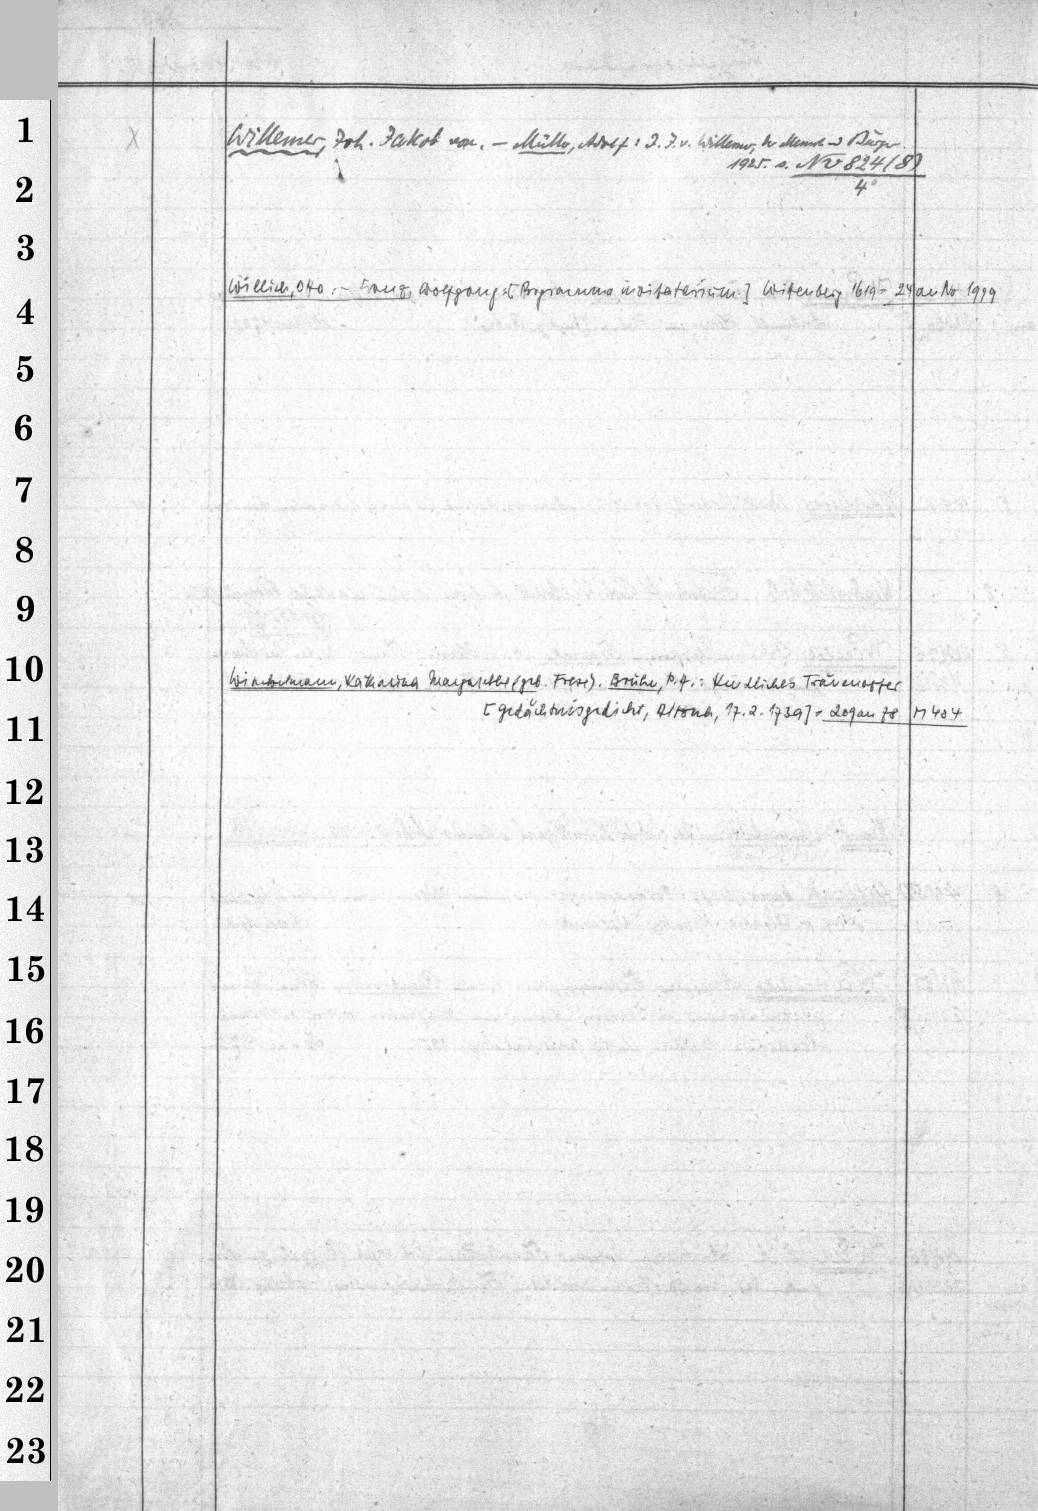 1
Willemer, Joh. Jakob von. – Müller, Adolf: J. J. v. Willemer, der Mensch u. Bürger.
1925. s. Nv 824(8)
2
4°
3
Willich, Otto. – Franz, Wolfgang: [Programma invitatorium.] Witenberg 1619 – 24 an Nv 1999
4
5
6
7
8
9
10
Winckelmann, Katharina Margarethe (geb. Frese). Bruhn, P. J.: Kindliches Traueropfer
[Gedächtnisgedicht, Altona, 17.2.1739] – 20 an 78 M 404
11
12
13
14
15
16
17
18
19
20
21
22
23